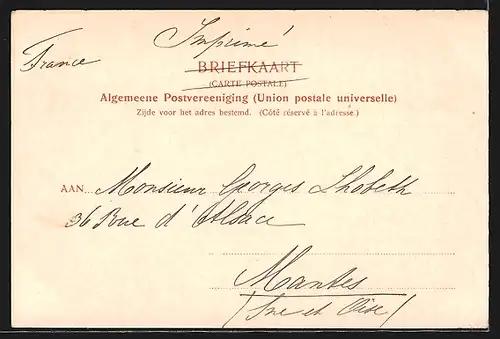 Imprimé
France
BRIEFKAART
(CARTE POSTALE)
Algemeene Postvereeniging (Union postale universelle)
Zijde voor het adres bestemd. (Côté réservé à l'adresse.)
AAN Monsieur Georges
36 Rue d'Alsace
Mantes
(Sne et Oise)